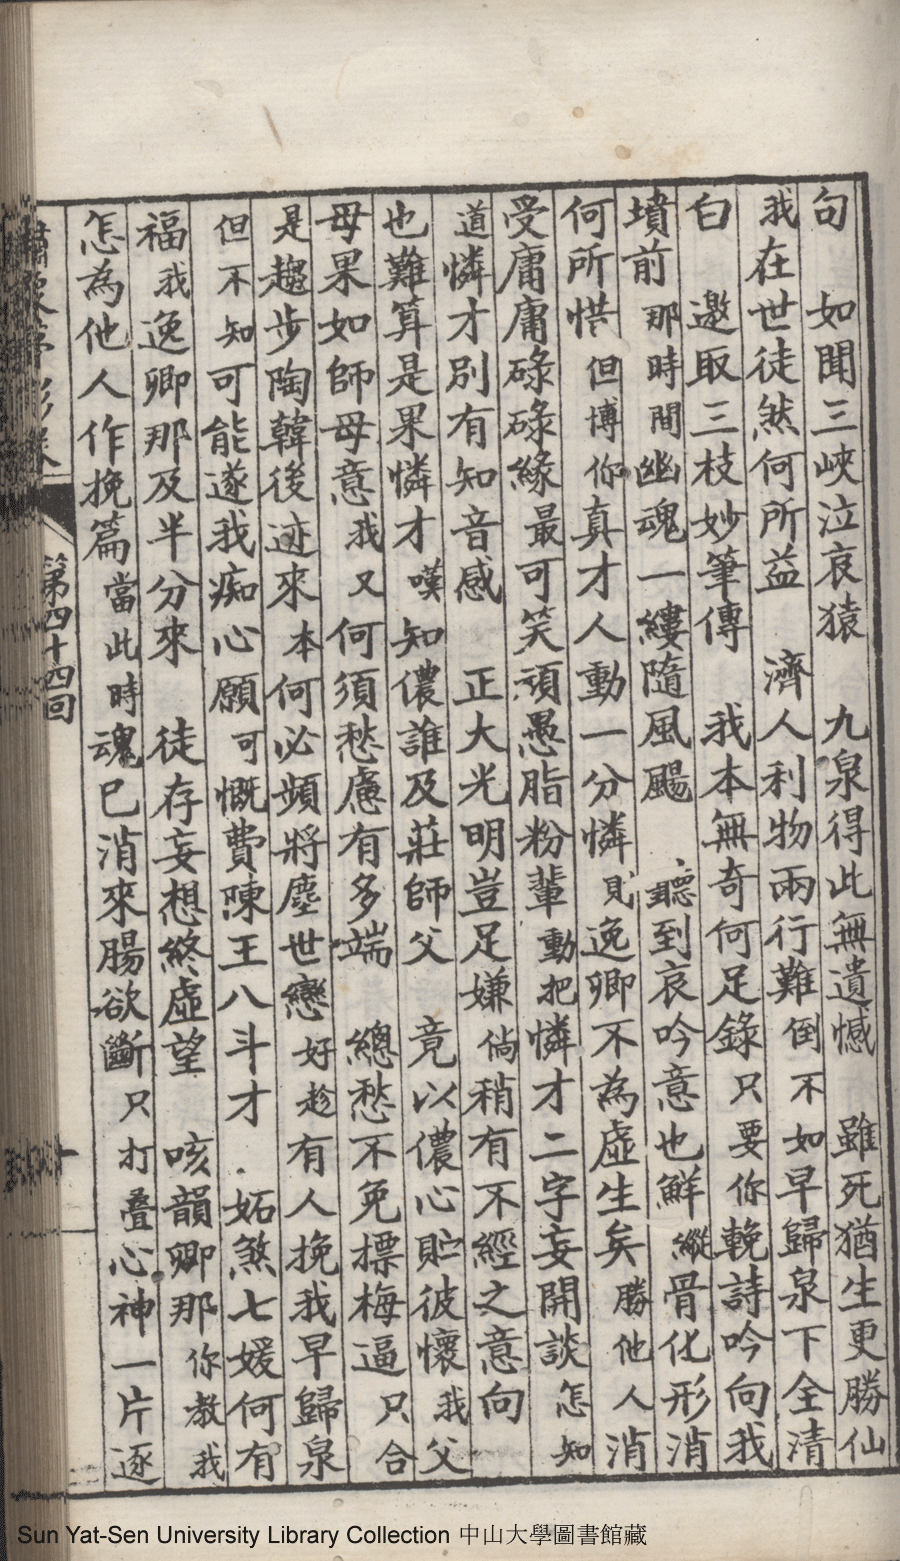 句　如聞三峽泣哀猿　九泉得此無遺憾　雖死猶生更勝仙
我在世徒煞何所益　濟人利物兩行難倒不如早歸泉下全清
白　邀取三枝妙筆傳　我本無奇何足錄只要你輓詩吟向我
墳前那時間幽魂一縷隨風颺　聽到哀吟意也鮮縱骨化形消
何所惜但博你真才人動一分憐則逸卿不為虛生矣勝他人消
受庸庸碌碌緣最可笑頑愚脂粉輩動把憐才二字妄開談怎知
道憐才別有知音感　正大光明豈足嫌倘稍有不經之意向
也難算是果憐才嘆知儂誰及莊師父　竟以儂心貯彼懷我父
母果如師母意我又何須愁慮有多端　總愁不免摽梅逼只合
是趨步陶韓後迹來本何必頻將塵世戀好趁有人挽我早歸泉
但不知可能遂我痴心願可慨費陳王八斗才　妬煞七媛何有
福我逸卿那及半分來　徒存妄想終虛望　咳韻卿那你教我
怎為他人作挽篇當此時魂已消來腸欲斷只打疊心神一片逐
第四十四回
Sun Yat-Sen University Library Collection 中山大學圖書館藏